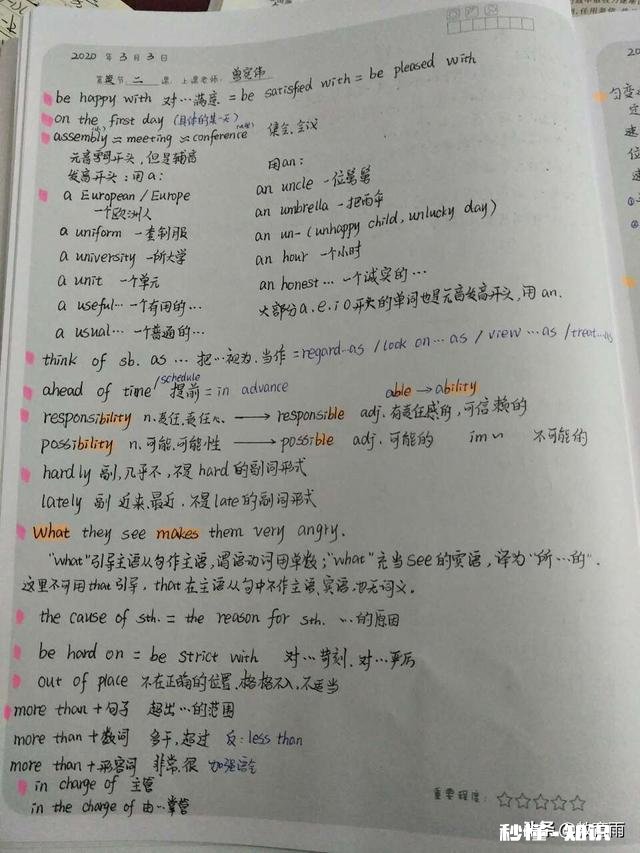 2020 年 3 月 3 日
第 节 二 课 上课老师:
be happy with 对…满意 = be satisfied with = be pleased with
on the first day (具体的某一天)
assembly = meeting = conference 集会, 会议
元音字母开头, 但是辅音
发音开头: 用 a:
用 an:
a European / Europe
一个欧洲人
a uniform 一套制服
a university 一所大学
a unit 一个单元
a useful… 一个有用的…
a usual… 一个普通的…
an uncle 一位舅舅
an umbrella 一把雨伞
an un- (unhappy child, unlucky day)
an hour 一个小时
an honest… 一个诚实的…
大部分 a. e. i o 开头的单词也是元音发音开头, 用 an.
think of sb. as … 把…视为. 当作 = regard…as / look on … as / view … as / treat…as
ahead of time /schedule 提前 = in advance
able → ability
responsibility n. 责任, 责任心 → responsible adj. 有责任感的, 可信赖的
possibility n. 可能, 可能性 → possible adj. 可能的 im~ 不可能的
hardly 副, 几乎不, 不是 hard 的副词形式
lately 副 近来, 最近. 不是 late 的副词形式
What they see makes them very angry.
"what"引导主语从句作主语, 谓语动词用单数; "what"充当 see 的宾语, 译为"所…的".
这里不可用 that 引导, that 在主语从句中不作主语、宾语, 也无词义。
the cause of sth. = the reason for sth. …的原因
be hard on = be strict with 对…苛刻. 对…严厉
out of place 不在正确的位置. 格格不入, 不适当
more than + 句子 超出…的范围
more than + 数词 多于, 超过 反: less than
more than + 形容词 非常, 很 加强语气
in charge of 主管
in the charge of 由…掌管
重要程度:
头条 @教育雨
秒懂-知识